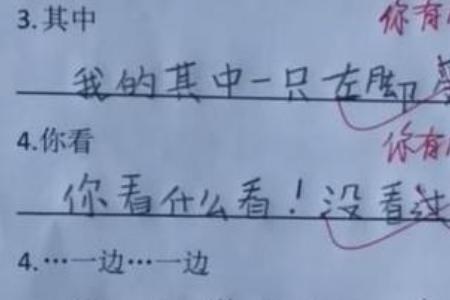 3.其中
你有
我的其中一只左脚受
4.你看
你有
你看什么看！没看过
4.…一边…一边